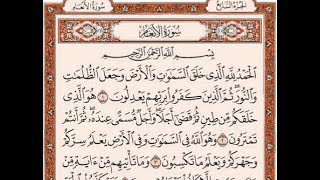 سُورَةُ الأَنْعَامِ الجُزْءُ السَّابِعُ
سُورَةُ الأَنْعَامِ
بِسْمِ اللَّهِ الرَّحْمَٰنِ الرَّحِيمِ
الْحَمْدُ لِلَّهِ الَّذِي خَلَقَ السَّمَٰوَٰتِ وَالْأَرْضَ وَجَعَلَ الظُّلُمَٰتِ
وَالنُّورَ ثُمَّ الَّذِينَ كَفَرُوا بِرَبِّهِمْ يَعْدِلُونَ ١ هُوَ الَّذِي
خَلَقَكُم مِّن طِينٍ ثُمَّ قَضَىٰ أَجَلًا وَأَجَلٌ مُّسَمًّى عِندَهُ ثُمَّ أَنتُمْ
تَمْتَرُونَ ٢ وَهُوَ اللَّهُ فِي السَّمَٰوَٰتِ وَفِي الْأَرْضِ يَعْلَمُ سِرَّكُمْ
وَجَهْرَكُمْ وَيَعْلَمُ مَا تَكْسِبُونَ ٣ وَمَا تَأْتِيهِم مِّنْ ءَايَةٍ مِّنْ